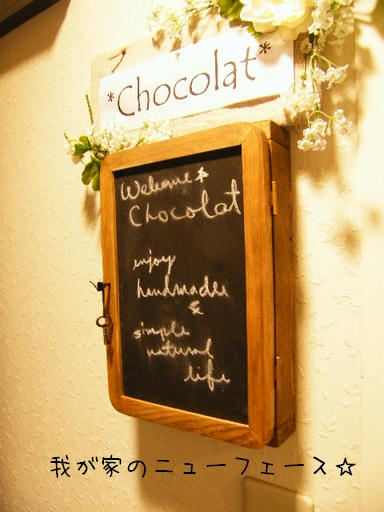 *Chocolat*
Welcome☆
Chocolat
enjoy
handmade
&
simple
natural
life
我が家のニューフェース☆